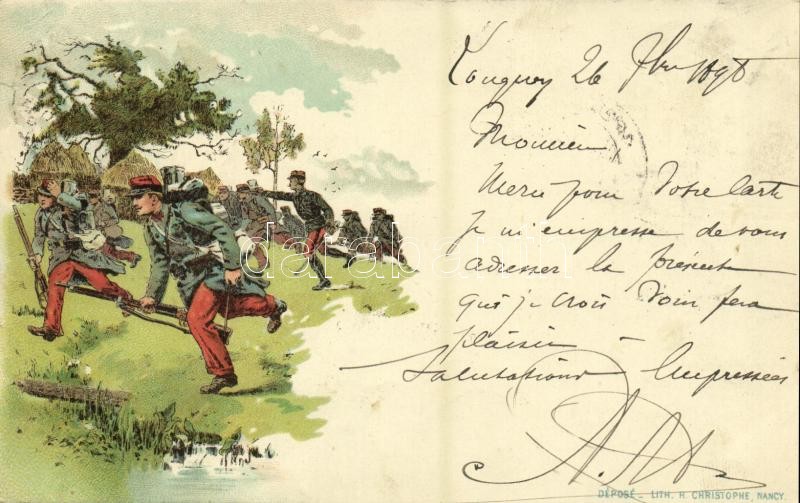 Longwy 26 7bre 1898
Monsieur
Merci pour Votre Carte
je m'empresse de vous
adresser la présente
qui je crois Vous fera
plaisir -
Salutations Empressées
DÉPOSÉ _ LITH. H. CHRISTOPHE, NANCY.
darabanth